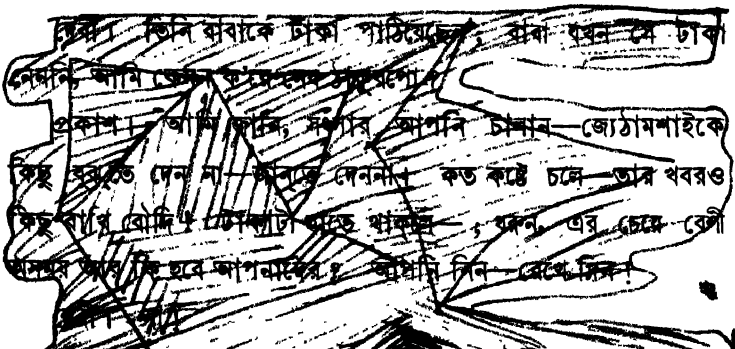 দেবী। তিনি বাবাকে টাকা পাঠিয়েছেন, বাবা যখন সে টাকা
নেননি, আমি কেমন ক'রে নেব ঠাকুরপো?
প্রকাশ। আমি জানি, সংসার আপনি চালান—জ্যেঠামশাইকে
কিছু বুঝতে দেন না—জানতে দেননা। কত কষ্টে চলে—তার খবরও
কিছু রাখি বৌদি। টাকাটা হাতে থাকলে—, ধরুন, এর চেয়ে বেশী
অসময় আর কি হবে আপনাদের? আপনি নিন—রেখে দিন!